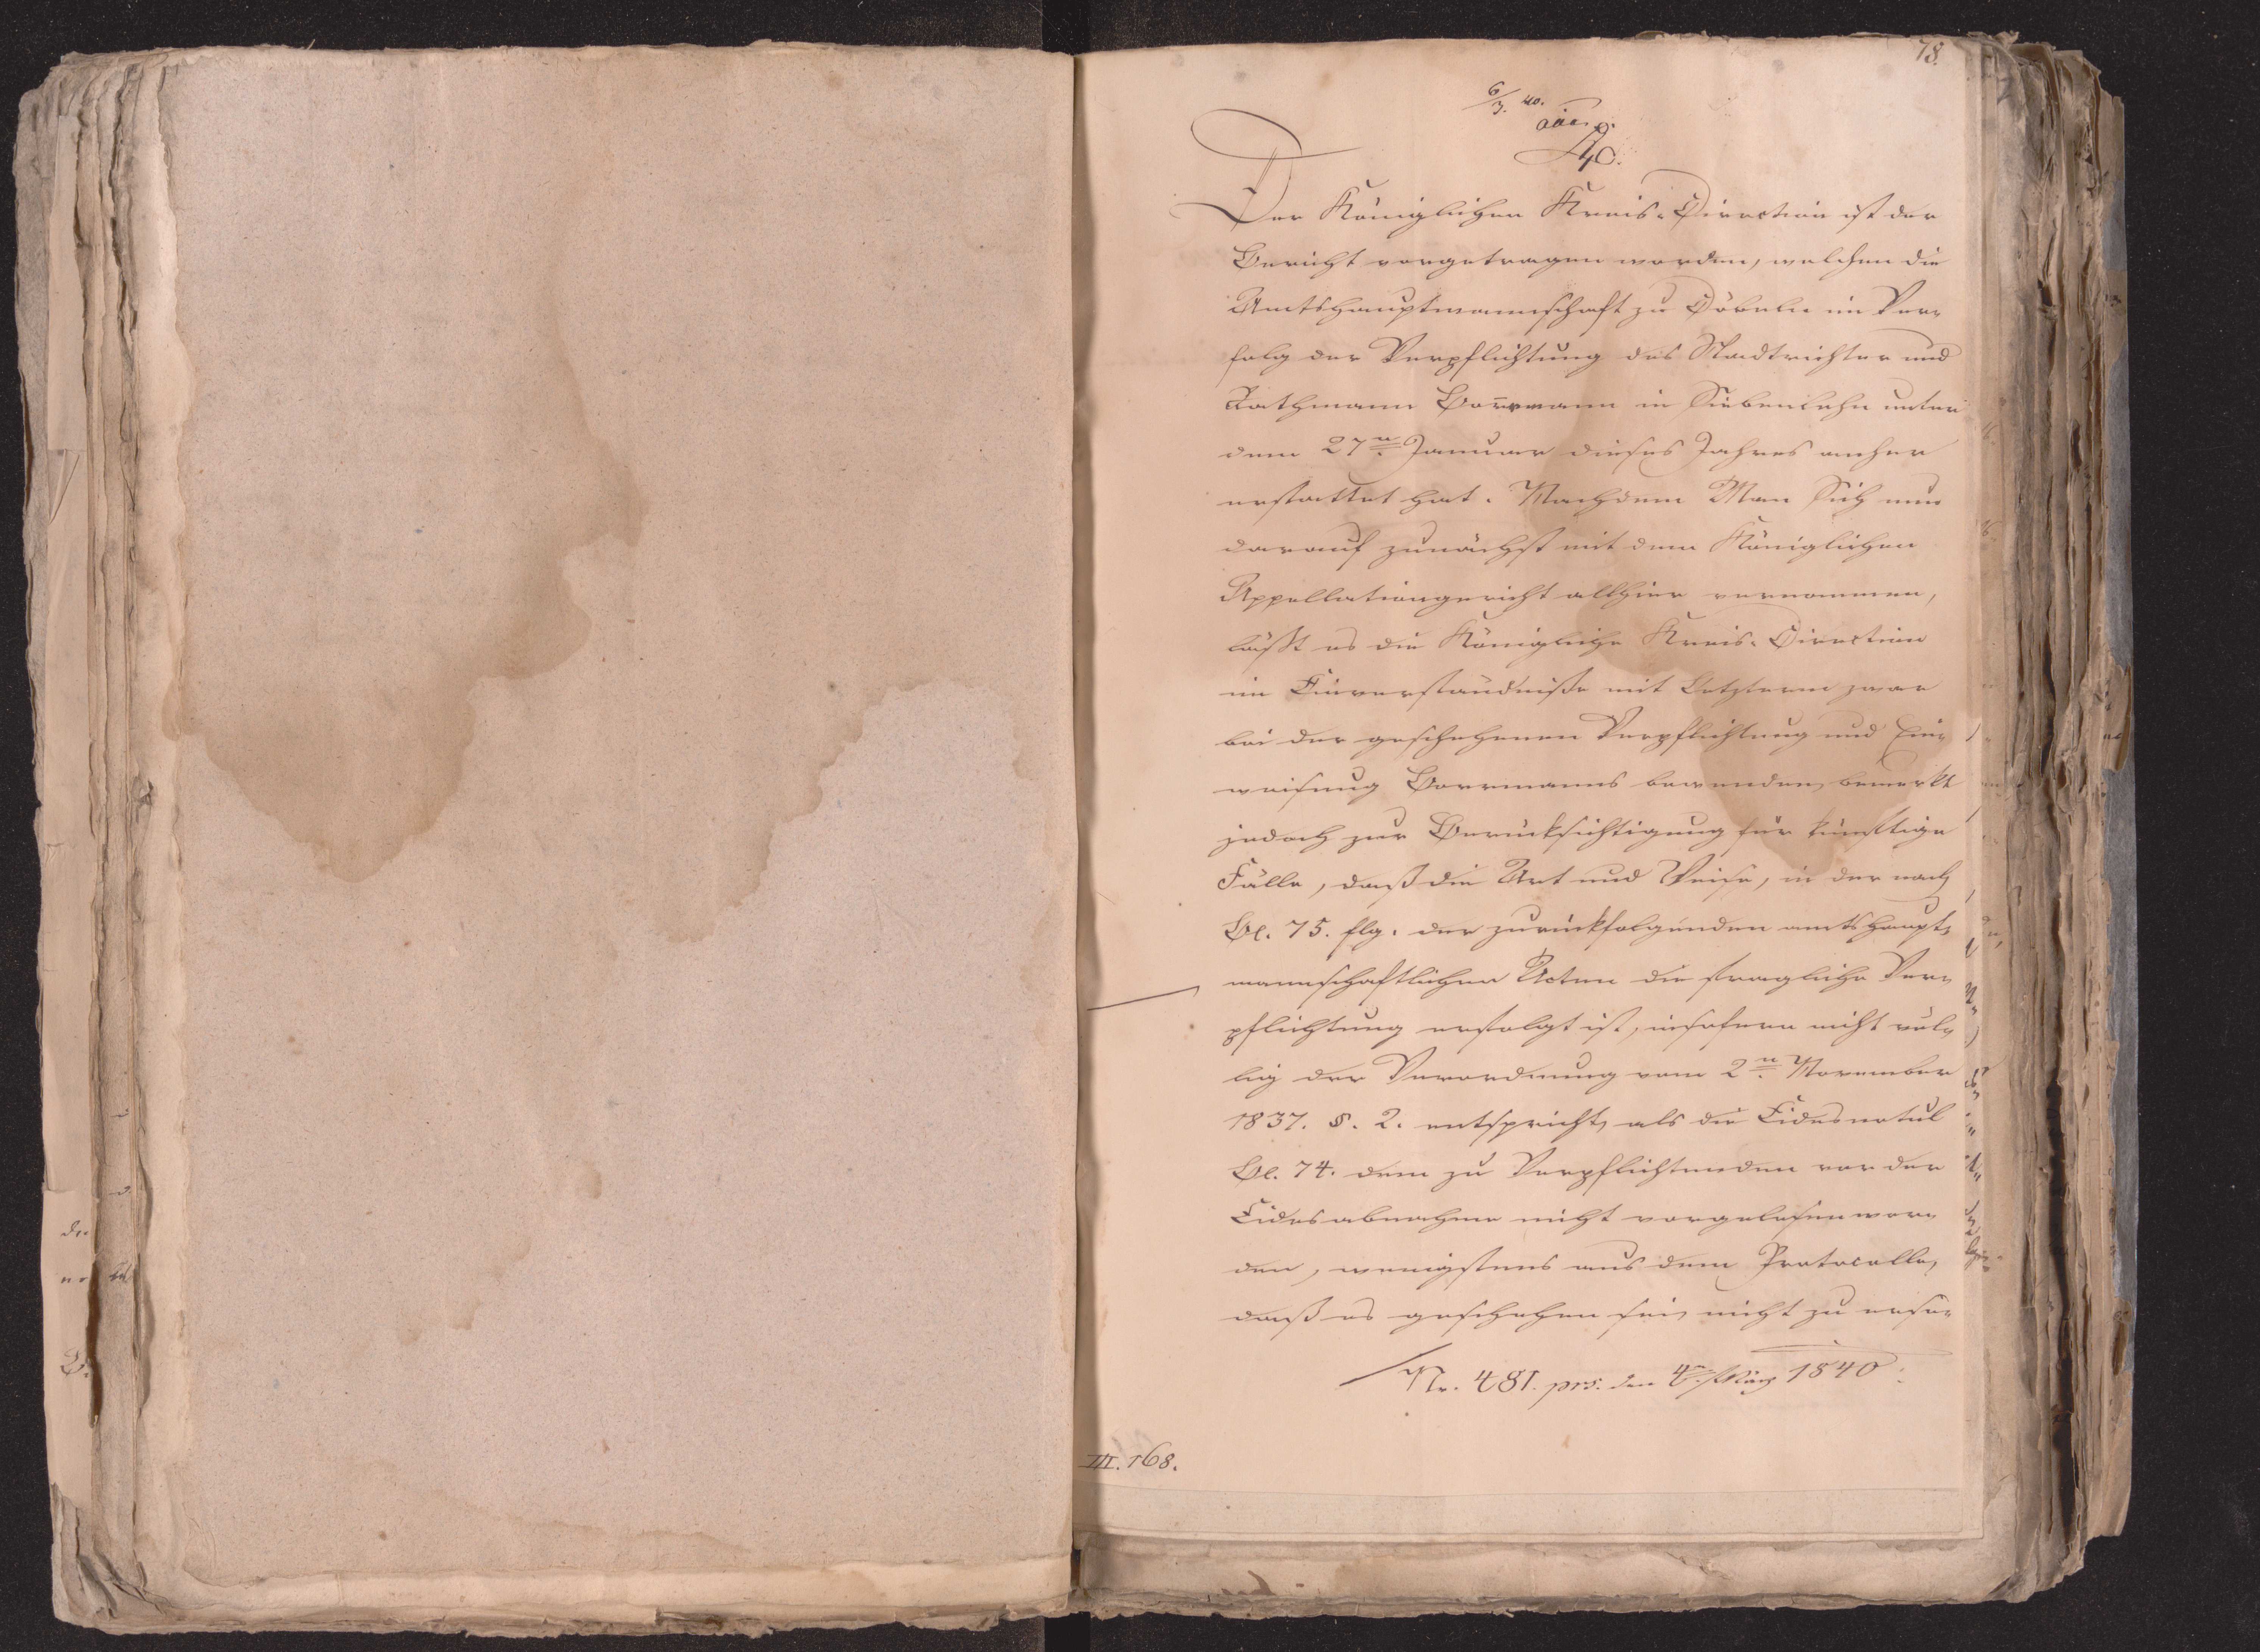 78.
6/3. 40.
Der Königlichen Kreis-Direction ist der
Bericht vorgetragen worden, welchen die
Amtshauptmannschaft zu Döbeln im Ver-
folg der Verpflichtung des Stadtrichter und
Rathmann Borrmann in Siebenlehn unter
dem 27n. Januar dieses Jahres anher
erstattet hat. Nachdem Man Sich nun
darauf zunächst mit dem Königlichen
Appellationgericht allhier vernommen,
läßt es die Königliche Kreis-Direction
im Einverständniße mit Letzterm zwar
bei der geschehenen Verpflichtung und Ein-
weisung Borrmanns bewenden, bemerkt
jedoch zur Berücksichtigung für künftige
Fälle, daß die Art und Weise, in der nach
Bl. 75. flg. der zurückfolgenden amtshaupt-
mannschaftlichen Acten die fragliche Ver-
pflichtung erfolgt ist, insofern nicht völ-
lig der Verordnung vom 2n. November
1837. §. 2. entspricht, als die Eidesnotul
Bl. 74. dem zu Verpflichtenden vor der
Eidesabnahme nicht vorgelesen wor-
den, wenigstens aus dem Protocolle,
daß es geschehen sei, nicht zu erse-
Nr. 481. prs. den 4n. März 1840.
III. 168.